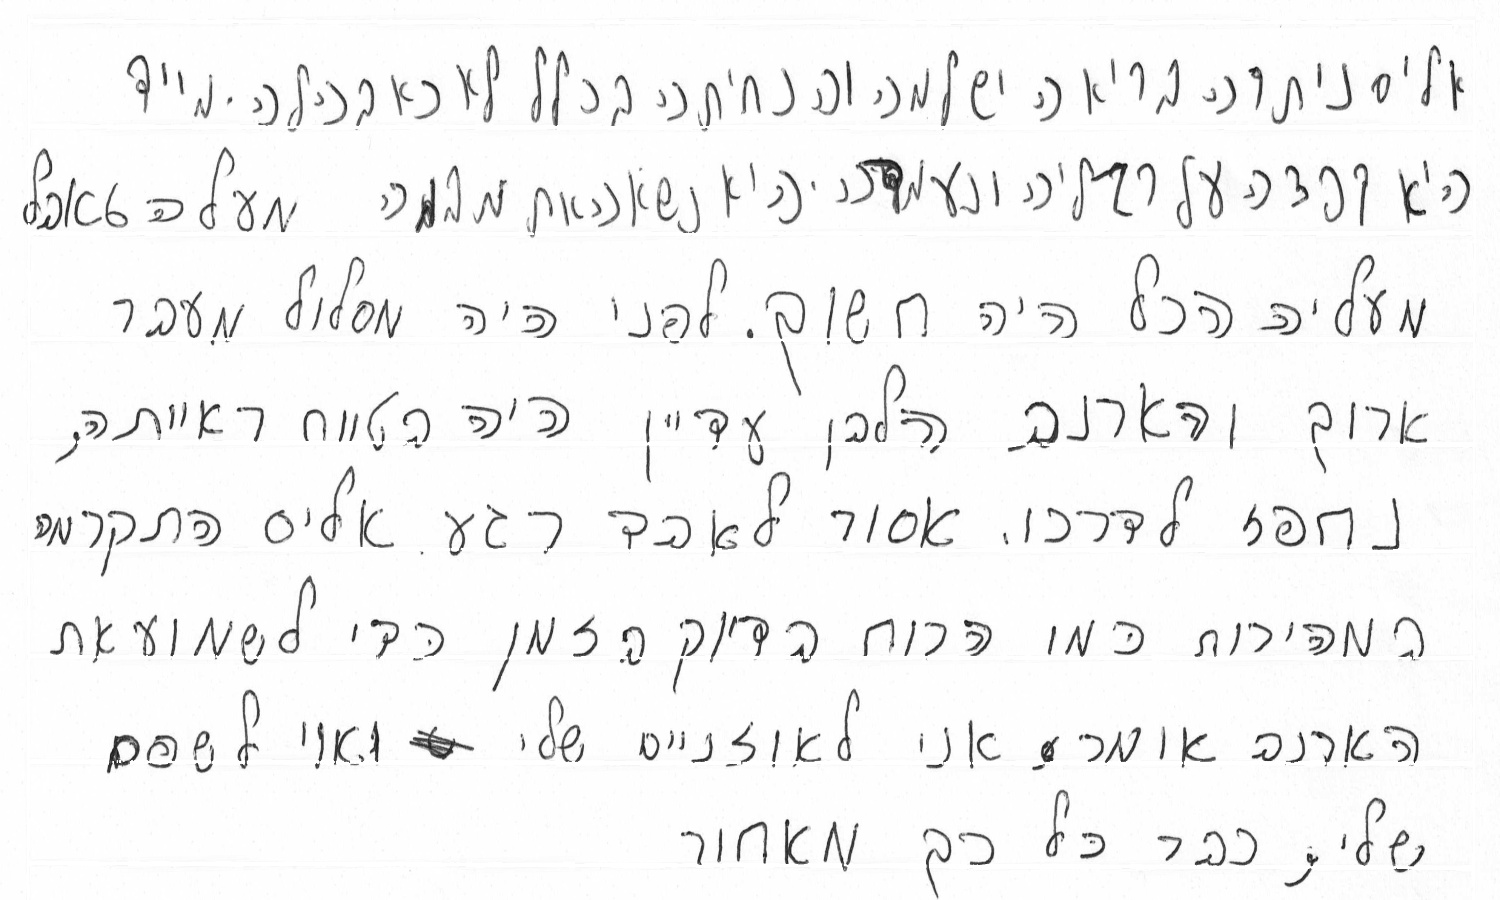 אליס ניתרה בריאה ושלמה והנחיתה בכלל לא כאבה לה. מייד
היא קפצה על רגליה ונעמדה. היא נשאה את מבטה מעלה אבל
מעליה הכל היה חשוך. לפני היה מסלול מעבר
ארוך והארנב הלבן עדיין היה בטווח ראייתה,
נחפז לדרכו. אסור לאבד רגע. אליס התקרמה
במהירות כמו הרוח בדיוק בזמן כדי לשמוע את
הארנב אומר אני לאוזניים שלי ואוי לשפם
שלי, כבר כל כך מאחור